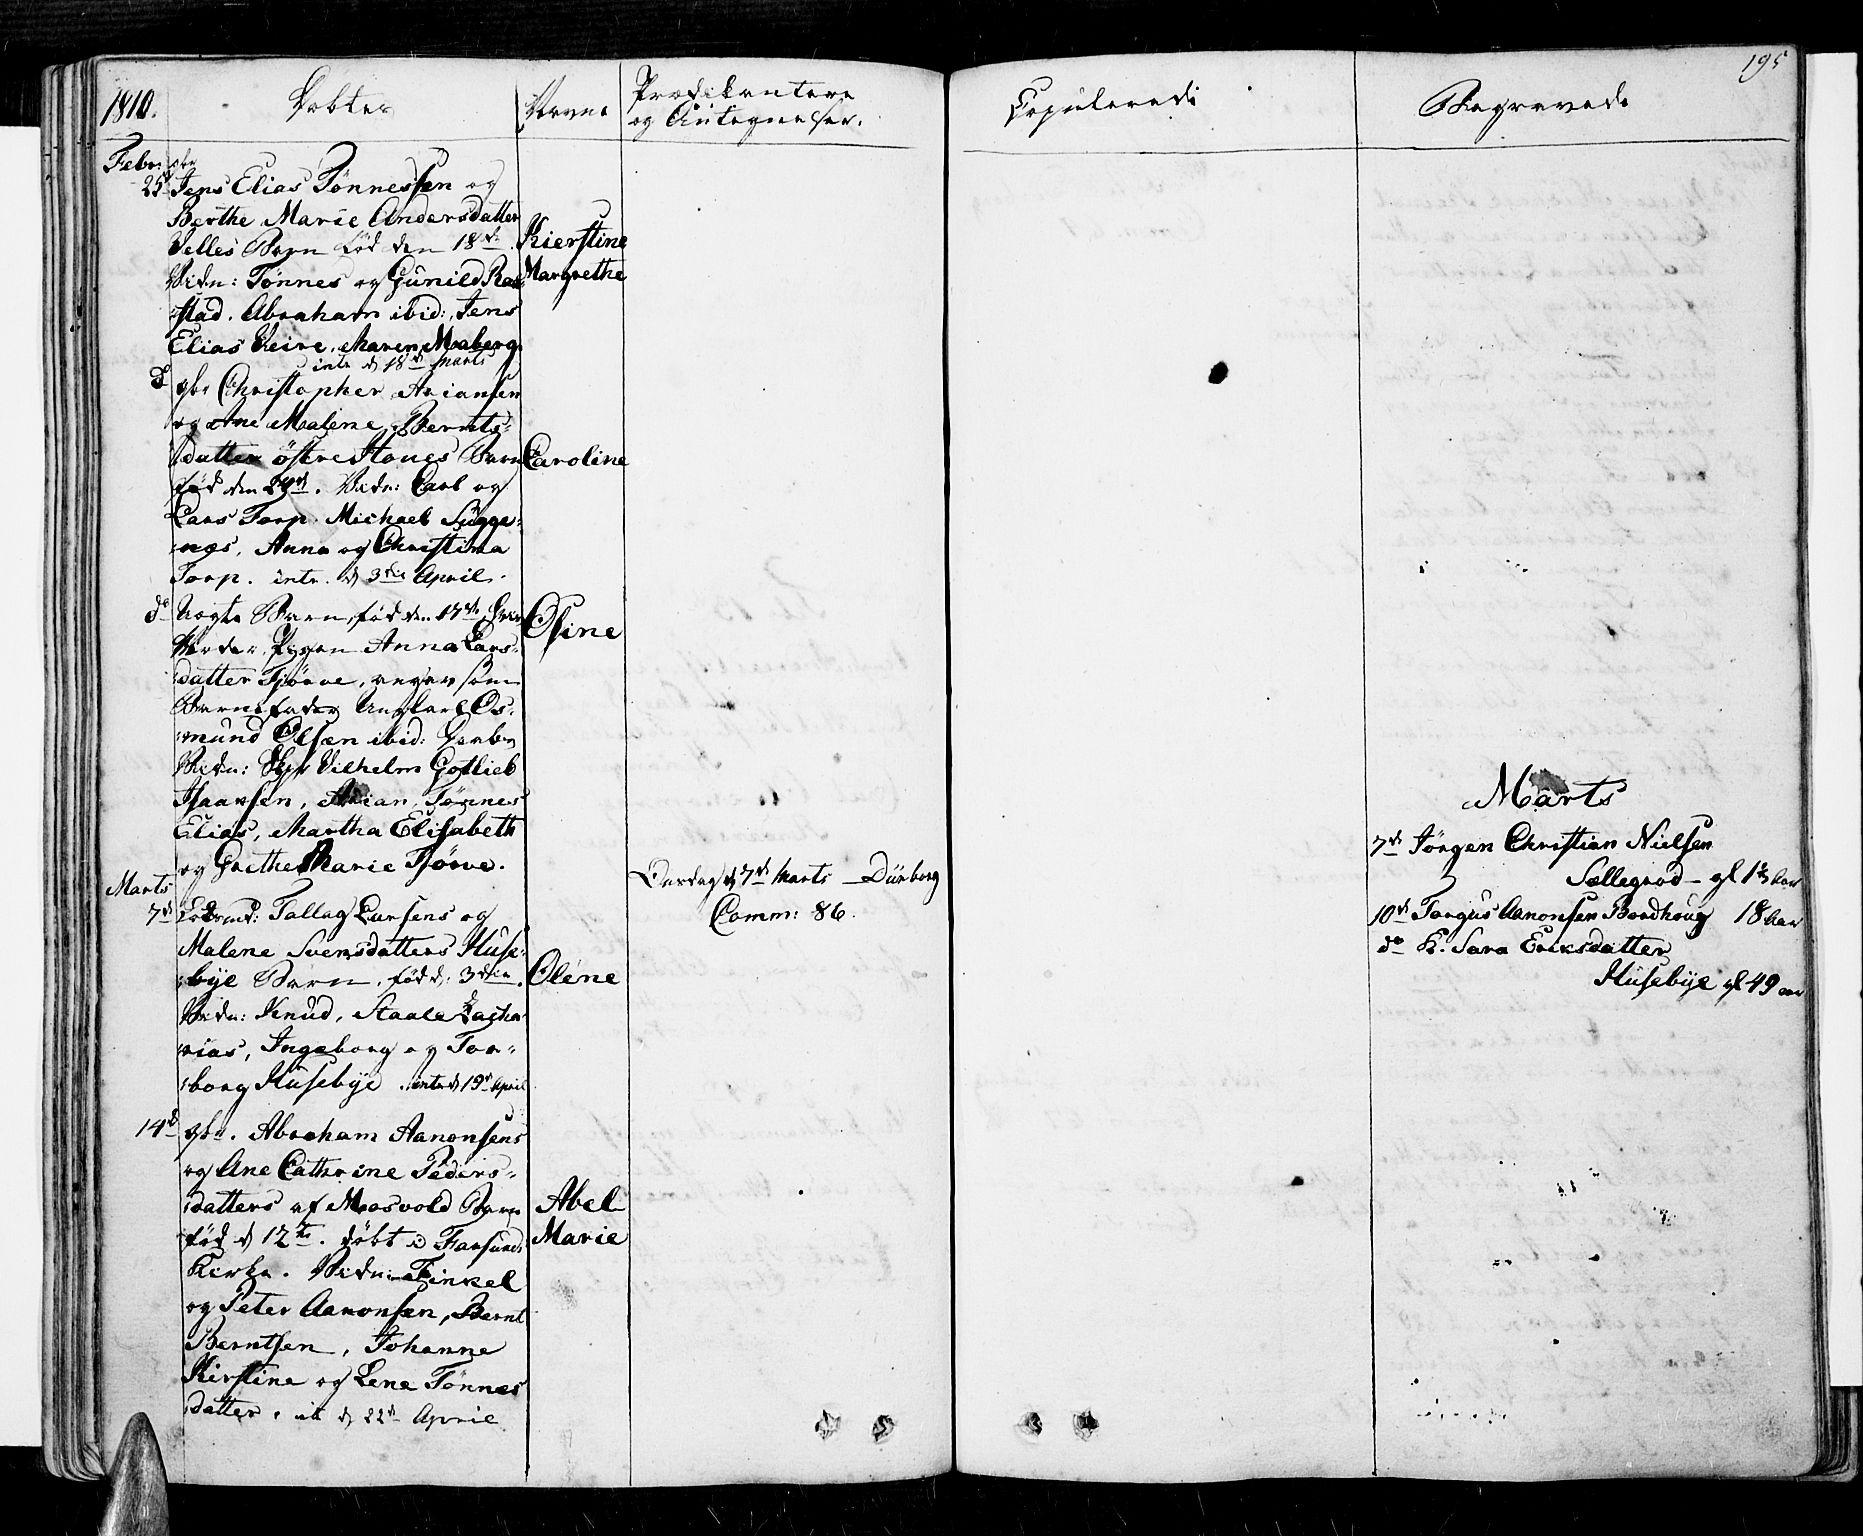 1810.
Döbte
Navne
Prædikantere
og Antegnelser.
Copulerede
Begravede
195
Febr
25 Jens Elias Tönnessen og
Berthe Marie Andersdatter
Velles Barn föd den 18de
Vidn: Tönnes og Gunild Rae
stad. Abraham ibid: Jens
Elias Veire, Maren Maberg
intr d 18de Marts
Kierstine
Margrethe
do gbr Christopher Ariansen
og Ane Malene Bernts-
datter östre Hanes Barn
föd den 24de. Vidn: Carl og
Lars Torp. Michael Sigge-
nes, Anna og Christina
Torp. intr. d 3die April.
Caroline
do Uægte Barn, föd den 17de
Moder Pigen Anna Lars-
datter Tjörve, angav som
Barnefader Ungkarl Os-
mund Olsen ibid:
Vidn: Vilhelm Gotlieb
Isaaksen, Arian, Tönnes
Elias, Martha Elisabeth
og Grethe Marie Tjörve.
Osine
Marts
7de Tallag Larsens og
Malene Svensdatters Huse-
bye Barn, föd d: 3die.
Vidn: Knud, Staale Zacha-
rias, Ingeborg og Tor-
borg Husebye. intr d 19de April
Olene
14de gbr. Abraham Aanonsens
og Ane Cathrine Peders-
datters af Mosvold Barn
föd d 12te. döbt i Farsunds
Kirke. Vidn: Tinkel
og Peter Aanonsen, Bernt
Berntsen, Johanne
Kirstine og Lene Tönnes
datter. it d 22de April
Abel
Marie
Onsdag d 7de Marts Dürborg
Comm: 86.
Marts
7de Jörgen Christian Nielsen
Sællegrod gl 1½ Aar
10de Torgus Aanonsen Bordhoug 18 aar
do K. Sara Eriksdatter
Husebye gl 49 aar